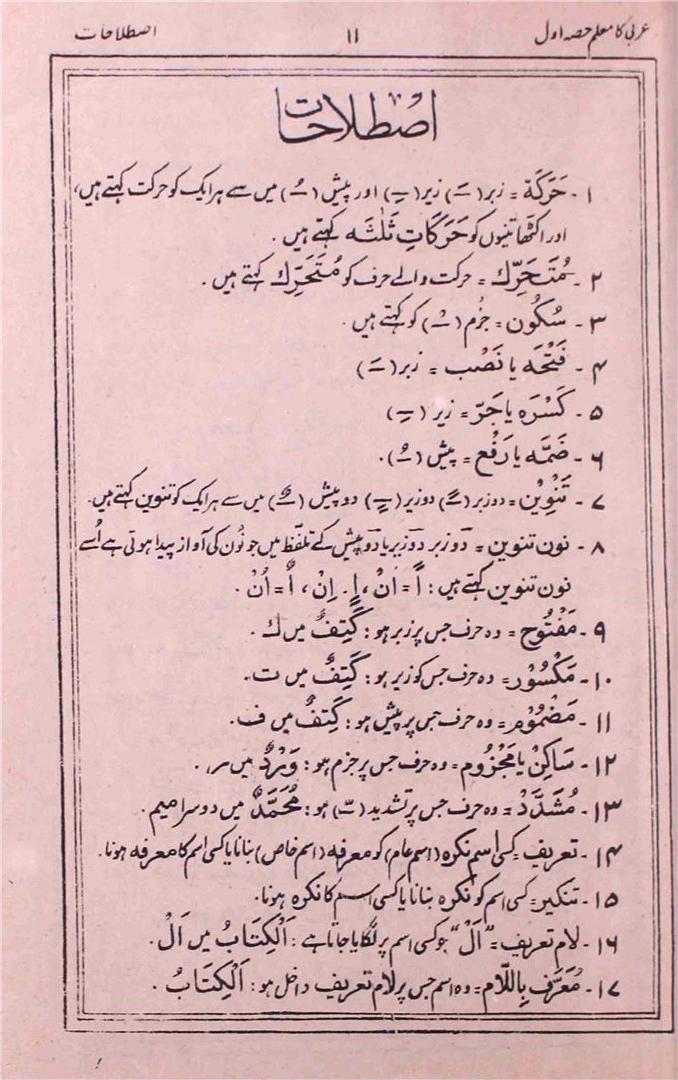 عربی کا معلم حصہ اول ۱۱ اصطلاحات
اصطلاحات
۱- حَرَكَة = زبر (ـَ) زیر (ـِ) اور پیش (ـُ) میں سے ہر ایک کو حرکت کہتے ہیں،
اور اکٹھا تینوں کو حَرَکَاتِ ثَلٰثَہ کہتے ہیں.
۲- مُتَحَرِّك = حرکت والے حرف کو مُتَحَرِّك کہتے ہیں.
۳- سُکُون = جزم (ـْ) کو کہتے ہیں.
۴- فَتْحَہ یا نَصْب = زبر (ـَ)
۵- کَسْرَہ یا جَرّ = زیر (ـِ)
۶- ضَمَّہ یا رَفْع = پیش (ـُ).
۷- تَنْوِیْن = دو زبر (ـً) دو زیر (ـٍ) دو پیش (ـٌ) میں سے ہر ایک کو تنوین کہتے ہیں.
۸- نون تنوین = دو زبر دو زیر یا دو پیش کے تلفّظ میں جو نُون کی آواز پیدا ہوتی ہے اُسے
نون تنوین کہتے ہیں: اً = اَنْ، اٍ. اِنْ، اٌ = اُنْ.
۹- مَفْتُوح = وہ حرف جس پر زبر ہو: كَتِفٌ میں ك.
۱۰- مَکْسُوْر = وہ حرف جس کو زیر ہو: كَتِفٌ میں ت.
۱۱- مَضْمُوْم = وہ حرف جس پر پیش ہو: كَتِفٌ میں ف.
۱۲- سَاکِنْ یا مَجْزُوم = وہ حرف جس پر جزم ہو: وَرْدٌ میں ر.
۱۳- مُشَدَّدْ = وہ حرف جس پر تشدید (ـّ) ہو: مُحَمَّدٌ میں دوسرا میم.
۱۴- تعریف = کسی اسم نکرہ (اسم عام) کو معرفہ (اسم خاص) بنانا یا کسی اسم کا معرفہ ہونا.
۱۵- تنکیر = کسی اسم کو نکرہ بنانا یا کسی اسم کا نکرہ ہونا.
۱۶- لام تعریف = "اَلْ" جو کسی اسم پر لگایا جاتا ہے: اَلْكِتَابُ میں اَلْ.
۱۷- مُعَرَّف بِاللَّام = وہ اسم جس پر لام تعریف داخل ہو: اَلْكِتَابُ.